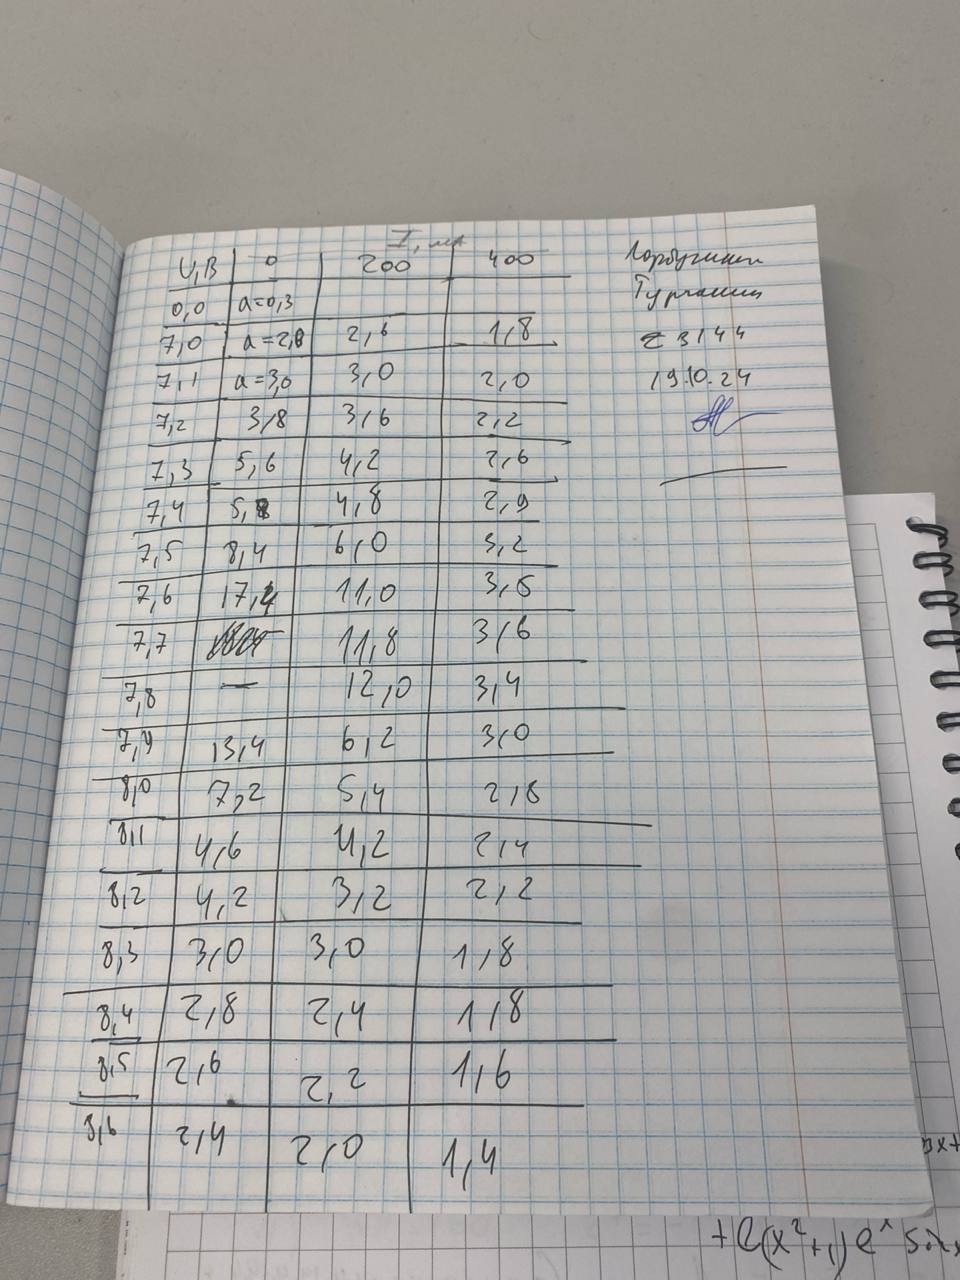 I, мА
U,В 0 200 400
0,0 a=0,3
7,0 a=2,8 2,6 1,8
7,1 a=3,0 3,0 2,0
7,2 3,8 3,6 2,2
7,3 5,6 4,2 2,6
7,4 5,8 4,8 2,9
7,5 8,4 6,0 3,2
7,6 17,4 11,0 3,5
7,7 11,8 3,6
7,8 — 12,0 3,4
7,9 13,4 6,2 3,0
8,0 7,2 5,4 2,8
8,1 4,6 4,2 2,4
8,2 4,2 3,2 2,2
8,3 3,0 3,0 1,8
8,4 2,8 2,4 1,8
8,5 2,6 2,2 1,6
8,6 2,4 2,0 1,4
3144
19.10.24
+2(x²+1)eˣ sin x